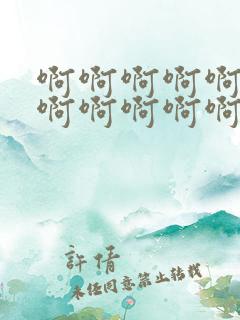 啊啊啊啊啊
啊啊啊啊啊
許倩
未经同意禁止转载